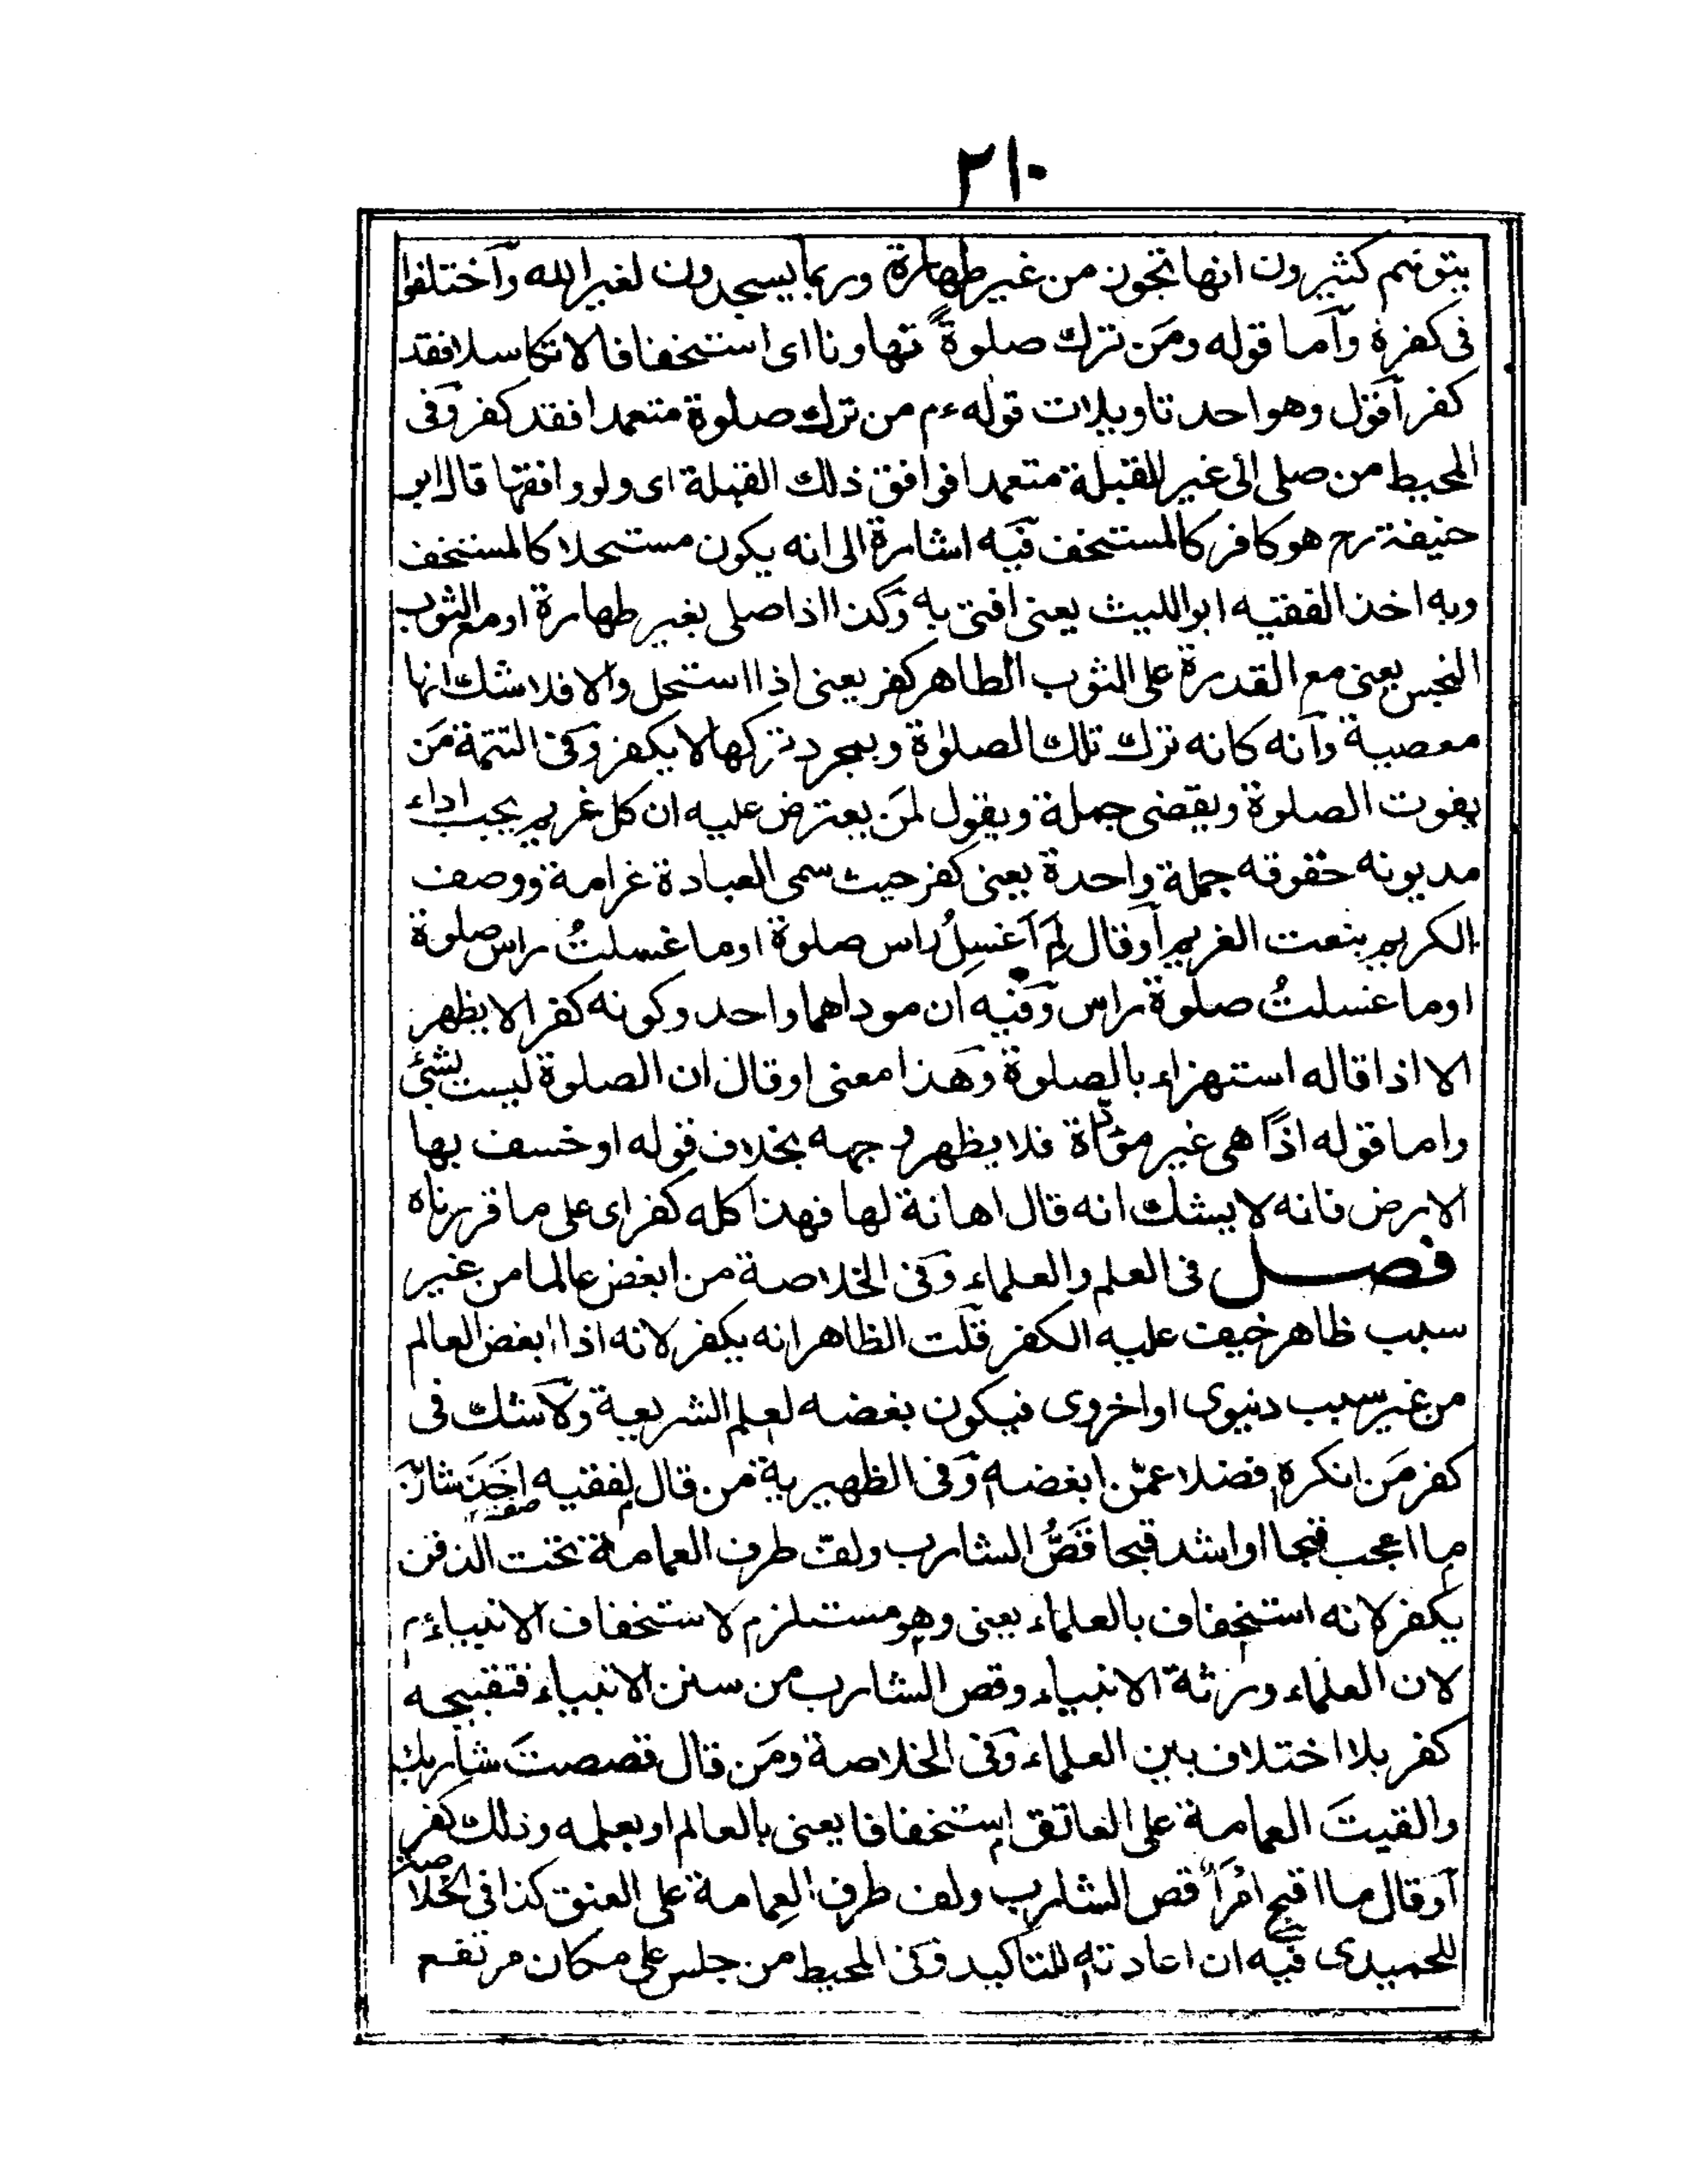 ٢١٠
يتوهم كثيرون انها تجوز من غير طهارة وربما يسجدون لغير الله واختلفوا
فى كفره وأما قوله ومَن ترك صلوةً تهاونا اى استخفافا لا تكاسلا فقد
كفر أقول وهو احد تاويلات قوله ءم من ترك صلوة متعمدا فقد كفر وفى
المحيط من صلى الى غير القبلة متعمدا فوافق ذلك القبلة اى ولو وافقها قال ابو
حنيفة رح هو كافر كالمستخف فيه اشارة الى انه يكون مستحلا كالمستخف
وبه اخذ الفقيه ابو الليث يعنى افتى به وكذا اذا صلى بغير طهارة او مع الثوب
النجس يعنى مع القدرة على الثوب الطاهر كفر يعنى اذا استحل والا فلا شك انها
معصية وأنه كانه ترك تلك الصلوٰة وبمجرد تركها لا يكفر وفى التتمة مَن
يفوت الصلوة ويقضى جملة ويقول لمَن يعترض عليه ان كل غريم يجب اداء
مديونه حقوقه جملة واحدة يعنى كفر حيث سمى العبادة غرامة ووصف
الكريم بنعت الغريم أو قال لَم أغسِلُ راس صلوة او ما غسلتُ راس صلوة
او ما غسلتُ صلوة راس وفيه ان موداهما واحد وكونه كفرا لا يظهر
الا اذا قاله استهزاء بالصلوة وهَذا معنى او قال ان الصلوة ليست بشئ
واما قوله اذًا هى غير مؤدّاة فلا يظهر وجهه بخلاف قوله او خسف بها
الارض فانه لا يشك انه قال اهانة لها فهذا كله كفر اى على ما قررناه
فصل فى العلم والعلماء وفى الخلاصة من ابغض عالما من غير
سبب ظاهر خيف عليه الكفر قلت الظاهر انه يكفر لانه اذا ابغض العالم
من غير سبب دنيوى او اخروى فيكون بغضه لعلم الشريعة ولا شك فى
كفر مَن انكره فضلا عمّن ابغضه وفى الظهيرية من قال لفقيه اخَذَ شاربَه
ما اعجب قبحا او اشد قبحا قَصُّ الشارب ولفّ طرف العمامة تحت الذقن
يكفر لانه استخفاف بالعلماء يعنى وهو مستلزم لاستخفاف الانبياء ءم
لان العلماء ورثة الانبياء وقص الشارب من سنن الانبياء فتقبيحه
كفر بلا اختلاف بين العلماء وفى الخلاصة ومَن قال قصصتَ شاربك
والقيتَ العمامة على العاتق استخفافا يعنى بالعالم او بعلمه وذلك كفر
أو قال ما اقبح امْرَأً قص الشارب ولف طرف العِمامة على العنق كذا فى الخلاصة
للحميدى فيه ان اعادته للتاكيد وفى المحيط من جلس على مكان مرتفع